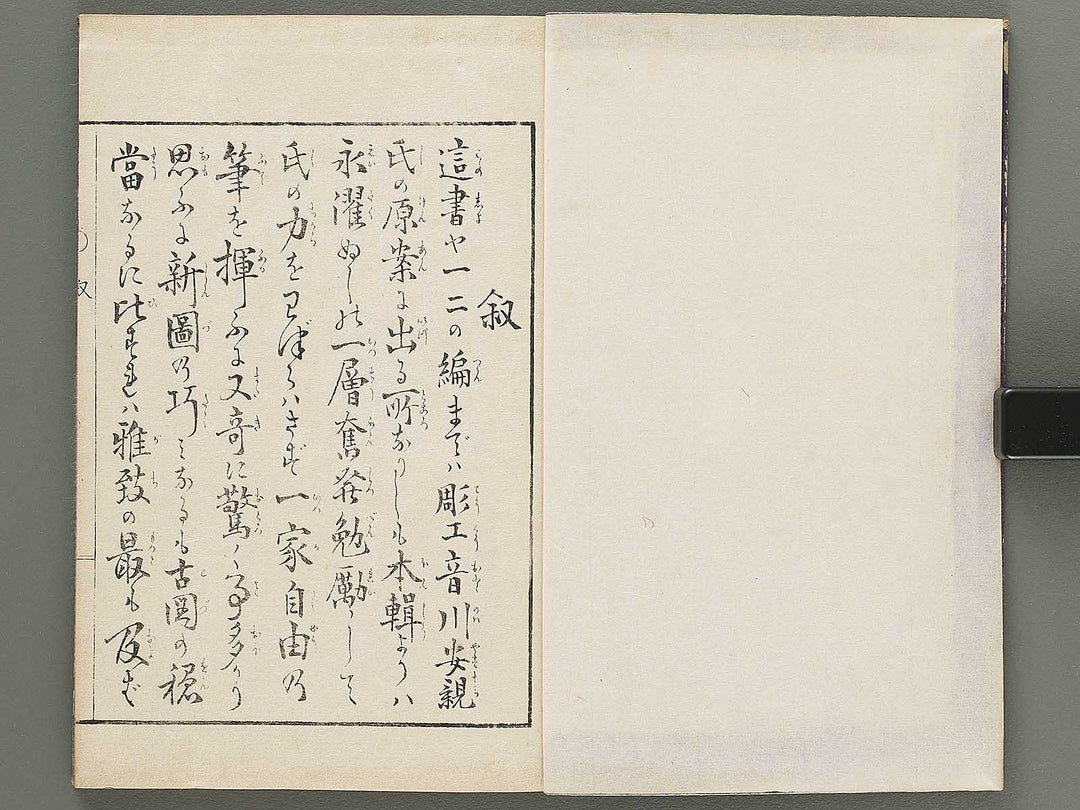 叙
這書や一二の編までハ彫工音川安親
氏の原案に出る所なりしも本輯よりハ
永濯ぬしの一層奮発勉励して
氏の力をわづらハさず一家自由の
筆を揮ふに又奇に驚く多かり
思ふに新圖の巧みなるも古図の穏
當なるに比すれハ雅致の最も及ば
叙